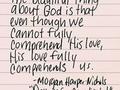 The beautiful thing
about God is that
even though we
cannot fully
comprehend His love,
His love fully
comprehends us.
- Morgan Harper Nichols